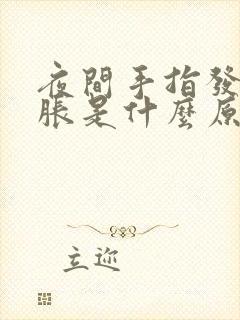 夜間手指發
脹是什麼原
立迩